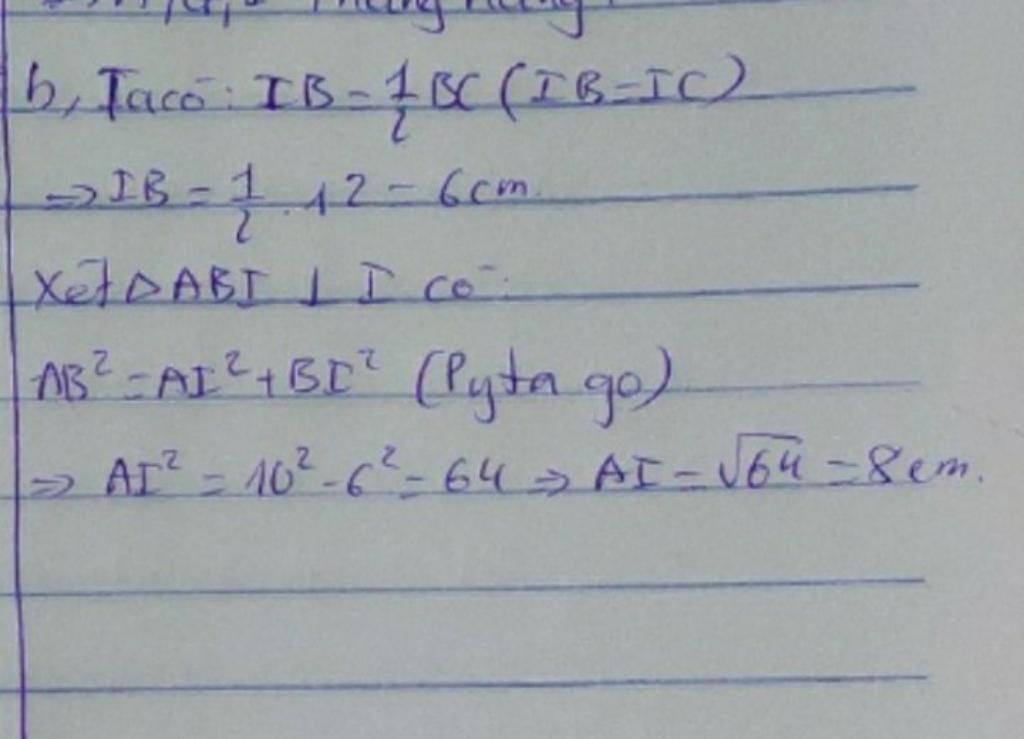 thẳng hàng.
b, Ta có: IB = 1/2 BC (IB = IC)
=> IB = 1/2 . 12 = 6cm.
Xét △ABI ⊥ I có:
AB² = AI² + BI² (Pytago)
=> AI² = 10² - 6² = 64 => AI = √64 = 8cm.